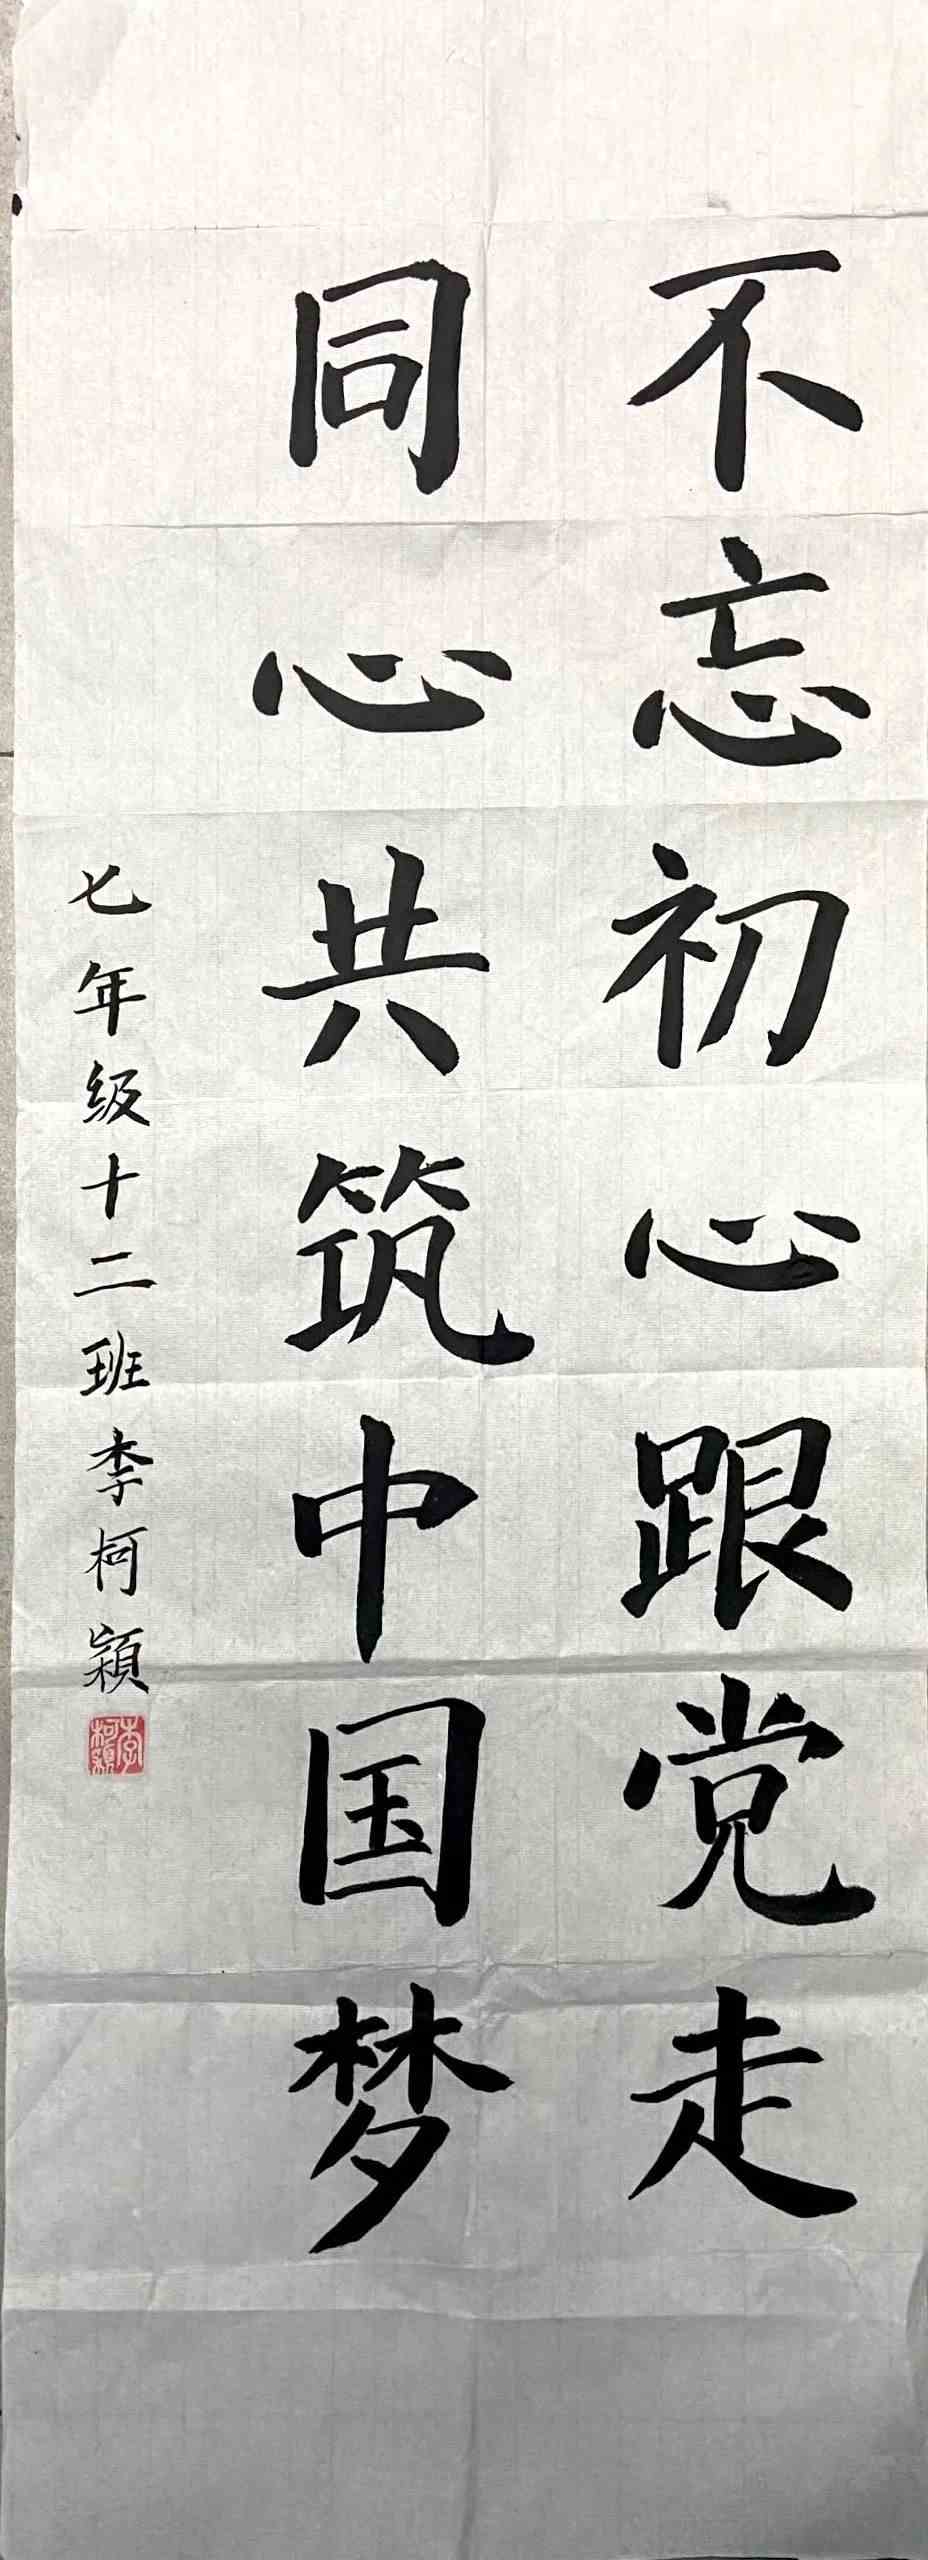 不忘初心跟党走
同心共筑中国梦
七年级十二班李柯颖
李柯颖